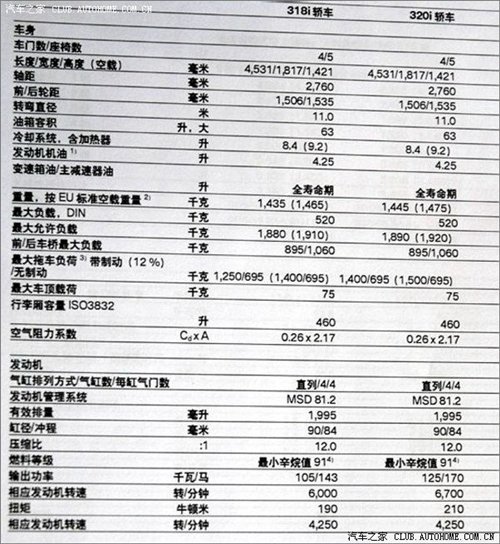 汽车之家 CLUB.AUTOHOME.COM.CN
318i轿车 320i轿车
车身
车门数/座椅数 4/5 4/5
长度/宽度/高度（空载） 毫米 4,531/1,817/1,421 4,531/1,817/1,421
轴距 毫米 2,760 2,760
前/后轮距 毫米 1,506/1,535 1,506/1,535
转弯直径 米 11.0 11.0
油箱容积 升，大 63 63
冷却系统，含加热器 升 8.4（9.2） 8.4（9.2）
发动机机油 1) 升 4.25 4.25
变速箱油/主减速器油
升 全寿命期 全寿命期
重量，按EU标准空载重量 2) 千克 1,435（1,465） 1,445（1,475）
最大负载，DIN 千克 520 520
最大允许负载 千克 1,880（1,910） 1,890（1,920）
前/后车桥最大负载 千克 895/1,060 895/1,060
最大拖车负荷 3) 带制动（12 %）
/无制动 千克 1,250/695（1,400/695） 1,400/695（1,500/695）
最大车顶载荷 千克 75 75
行李厢容量 ISO3832
升 460 460
空气阻力系数 Cd x A 0.26 x 2.17 0.26 x 2.17
发动机
气缸排列方式/气缸数/每缸气门数 直列/4/4 直列/4/4
发动机管理系统 MSD 81.2 MSD 81.2
有效排量 毫升 1,995 1,995
缸径/冲程 毫米 90/84 90/84
压缩比 :1 12.0 12.0
燃料等级 最小辛烷值 91 4) 最小辛烷值 91 4)
输出功率 千瓦/马 105/143 125/170
相应发动机转速 转/分钟 6,000 6,700
扭矩 牛顿米 190 210
相应发动机转速 转/分钟 4,250 4,250
汽车之家 CLUB.AUTOHOME.COM.CN